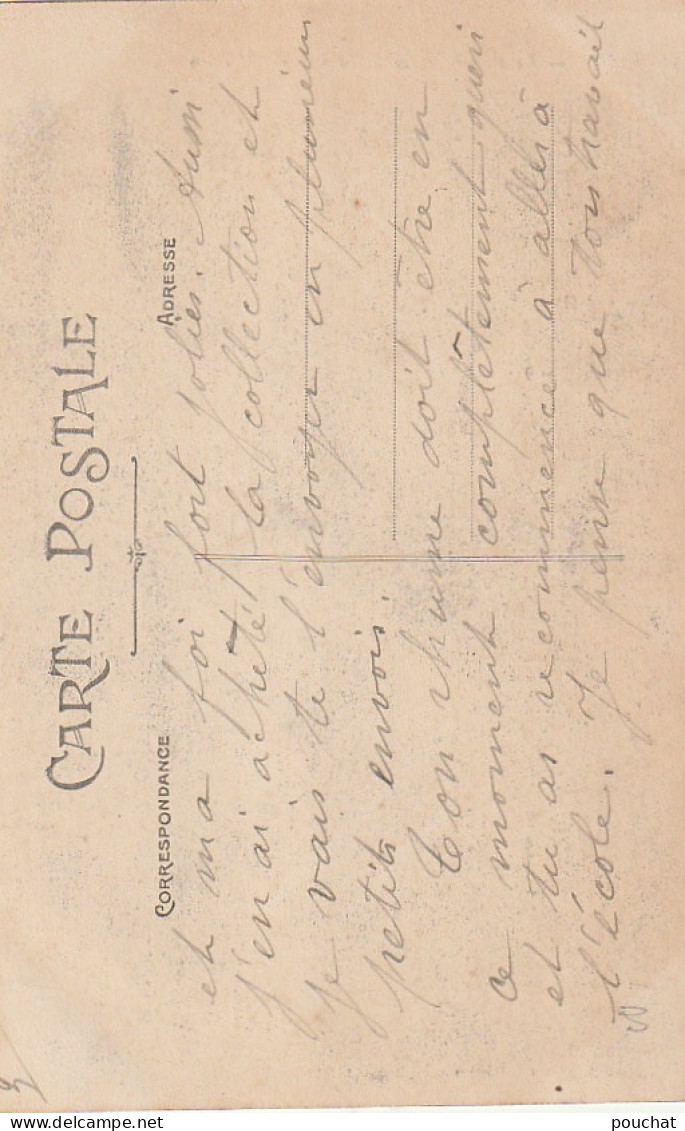 CARTE POSTALE
CORRESPONDANCE
ADRESSE
et ma foi fort jolies. Aussi
j'en ai acheté la collection et
je vais te l'envoyer en plusieurs
petits envois.
Ton rhume doit être en
ce moment complètement guéri
et tu as recommencé à aller à
l'école. Je pense que ton travail
pouchat
Delcampe.net